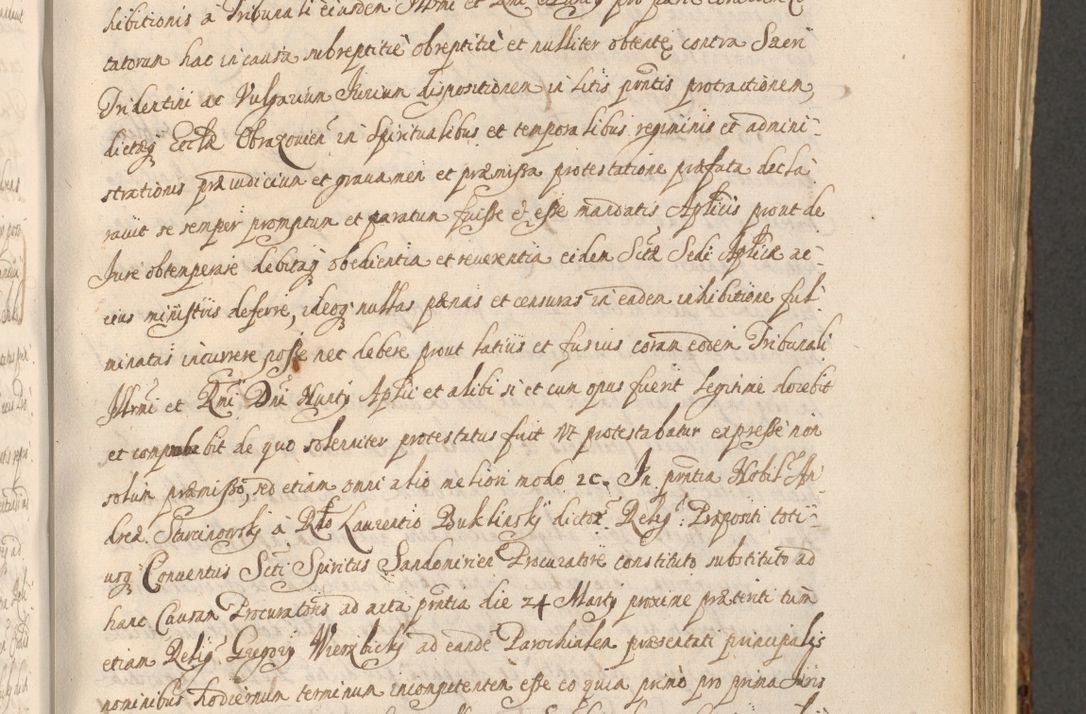 hibitionis a Tribunali eiusdem Illmi et Rmi
tatorum hac in causa subreptitiè obreptitiè et nulliter obtentę contra Sacri
Tridentini ac Vulgarium Jurium dispositionem in Litis pñtis protractionem,
dictæq Ecclæ Obrazouien in Spiritualibus et temporalibus regiminis et admini-
strationis præiudicium et grauamen et præmissa protestatione præfata decla-
rauit se semper promptum et paratum fuisse & esse mandatis Aplicis prout de
Jure obtemperare debitaq obedientia et reuerentia eidem Sctæ Sedi Aplicæ ac
eius ministris deferre, ideoq nullas pænas et censuras in eadem inhibitione ful-
minatas incurrere posse nec debere prout latius et fusius coram eodem Tribunali
Illrmi et Rmi Dni Nuntÿ Aplici et alibi si et cum opus fuerit legitimè docebit
et comprobabit de quo solenniter protestatus fuit Vt protestabatur expressè non
solum præmisso, sed etiam omni alio meliori modo 2c. In pñtia Nobil An-
dreæ Starcinowski a Rdo Laurentio Buklinskÿ dictor Relig: Præpositi toti-
usq Conuentus Scti Spiritus Sandomirien Procuratore constituto substituto ad
hanc Causam Procuratoris ad acta pñtia die 24 Martÿ proxime præteriti tum
etiam Relig Gregorÿ Wierzbickÿ ad eandē Parochialem præsentati principalis
nominibus hodiernum terminum incompetentem esse eo quia primò pro prima Juris